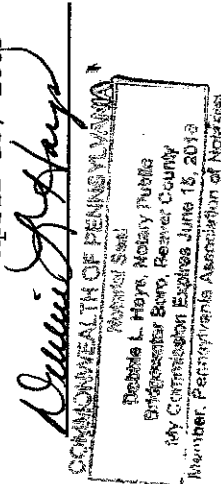 Debbie L Hays
COMMONWEALTH OF PENNSYLVANIA
Notarial Seal
Debbie L. Hays, Notary Public
Bridgewater Boro, Beaver County
My Commission Expires June 15, 2018
Member, Pennsylvania Association of Notaries